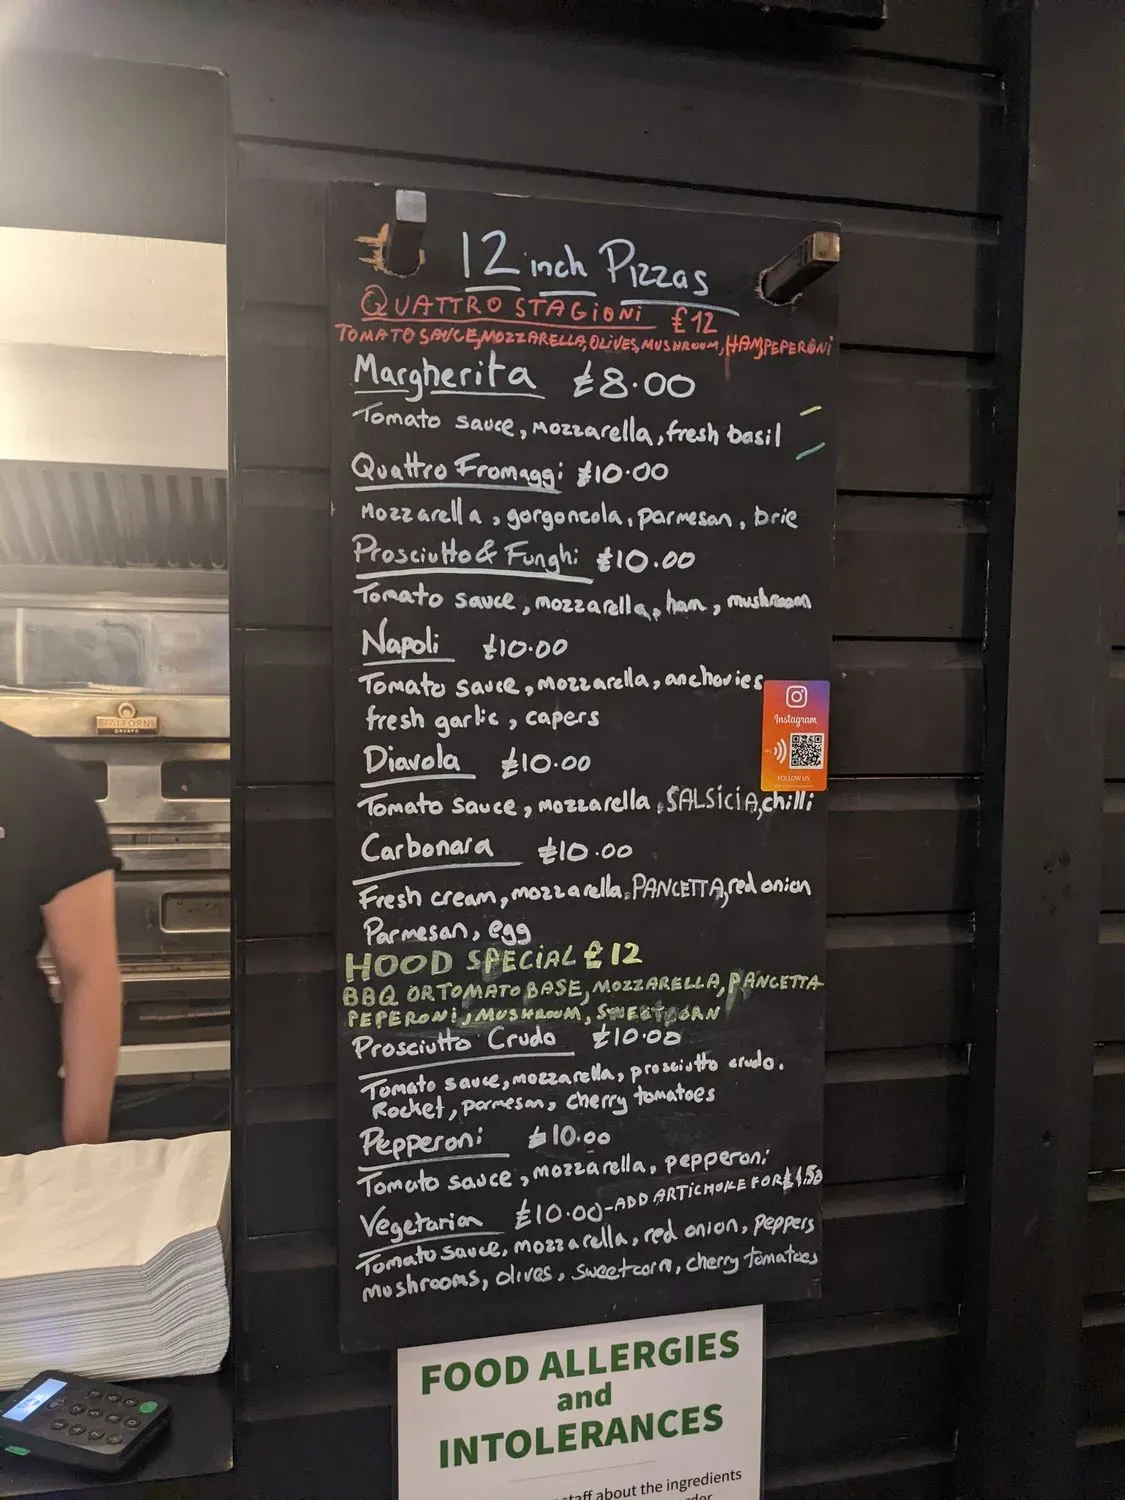 12 inch Pizzas
QUATTRO STAGIONI £12
TOMATO SAUCE, MOZZARELLA, OLIVES, MUSHROOM, HAM, PEPERONI
Margherita £8.00
Tomato sauce, mozzarella, fresh basil
Quattro Fromaggi £10.00
Mozzarella, gorgonzola, parmesan, brie
Prosciutto & Funghi £10.00
Tomato sauce, mozzarella, ham, mushroom
Napoli £10.00
Tomato sauce, mozzarella, anchovies
fresh garlic, capers
Diavola £10.00
Tomato sauce, mozzarella, SALSICIA, chilli
Carbonara £10.00
Fresh cream, mozzarella, PANCETTA, red onion
Parmesan, egg
HOOD SPECIAL £12
BBQ OR TOMATO BASE, MOZZARELLA, PANCETTA
PEPERONI, MUSHROOM, SWEETCORN
Prosciutto Crudo £10.00
Tomato sauce, mozzarella, prosciutto crudo.
Rocket, parmesan, cherry tomatoes
Pepperoni £10.00
Tomato sauce, mozzarella, pepperoni
Vegetarian £10.00 - ADD ARTICHOKE FOR £1.50
Tomato sauce, mozzarella, red onion, peppers
mushrooms, olives, sweetcorn, cherry tomatoes
Instagram
FOLLOW US
ITALFORNI
FOOD ALLERGIES
and
INTOLERANCES
staff about the ingredients